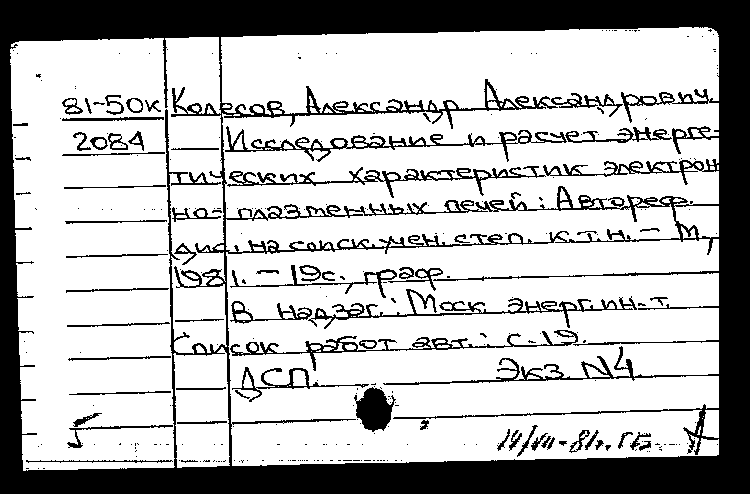 81-50к Колесов, Александр Александрович.
2084 Исследование и расчет энерге-
тических характеристик электрон
но-плазменных печей: Автореф.
дис. на соиск. учен. степ. к.т.н. – М.,
1981. – 19 с., граф.
В надзаг.: Моск. энерг. ин-т.
Список работ авт.: с. 19.
ДСП. Экз N4
14/VII-81г. ГБ.